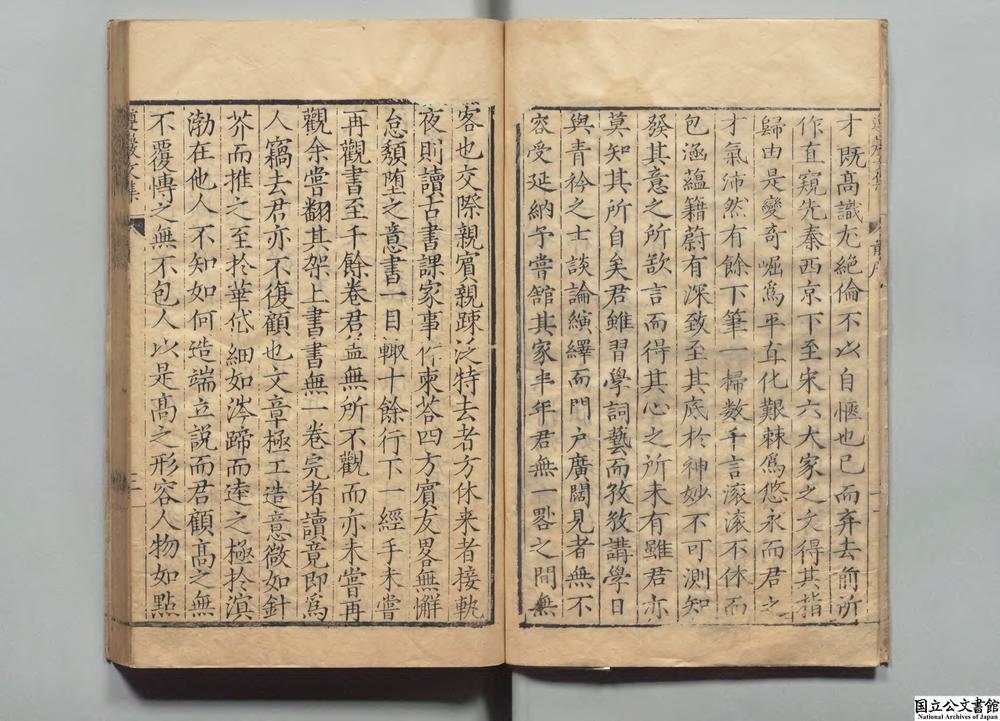 才既高識尤絶倫不以自愜也已而弃去前所
作直窺先秦西京下至宋六大家之文得其指
歸由是變奇崛爲平直化艱棘爲悠永而君之
才氣沛然有餘下筆一掃數千言滾滾不休而
包涵蘊籍蔚有深致至其底於神妙不可測知
發其意之所欲言而得其心之所未有雖君亦
莫知其所自矣君雖習學詞藝而孜孜講學日
與青衿之士談論演繹而門户廣闊見者無不
容受延納予嘗舘其家半年君無一畧之間無
客也交際親賓親踈泛特去者方休来者接軌
夜則讀古書課家事作柬荅四方賓友畧無懈
怠頽墮之意書一目輙十餘行下一經手未嘗
再觀書至千餘卷君葢無所不觀而亦未嘗再
觀余嘗翻其架上書書無一卷完者讀竟即爲
人竊去君亦不復顧也文章極工造意微如針
芥而推之至於華岱細如涔蹄而逹之極於溟
渤在他人不知如何造端立説而君顧高之無
不覆愽之無不包人以是高之形容人物如點
遵巖文集
国立公文書館
National Archives of Japan